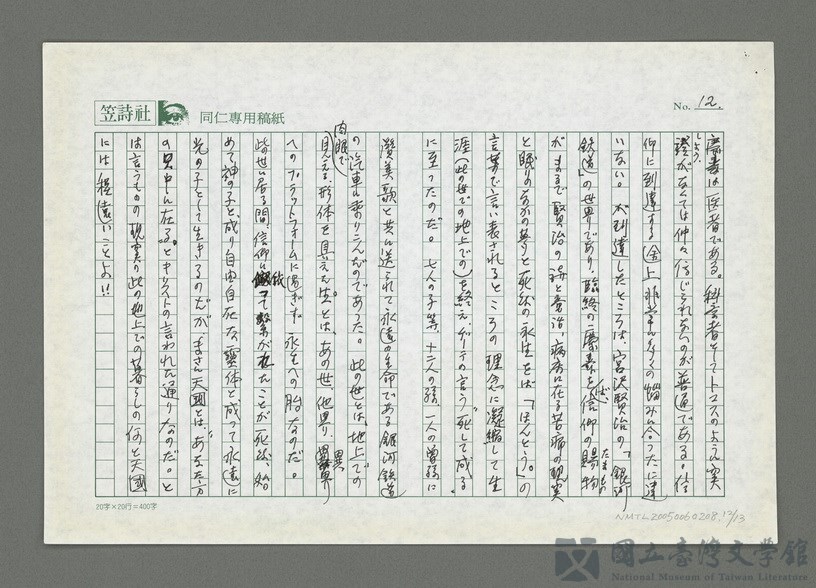 No. 12.
笠詩社 同仁専用稿紙
廉素は医者である。科学者としてトマスのように実
しょう
證がなくては仲々信じられないのが普通である。信
仰に到達する(会)上、非常な多くの悩みに会ったに違
いない。が到達したところは、宮沢賢治の「銀河
鉄道」の世界であり、臨終の廉素を信仰の賜物
たまもの
がまるで賢治の詩と童話、病床に在る苦痛の現実
と眠りのなかの夢と死後の永生をば「ほんとう」の
言葉で言い表されるところの理念に凝縮して生
涯(此の世での地上での)を終え、ゲーテの言う“死して成る”
に至ったのだ。七人の子等、十二人の孫、一人の曽孫に
讃美歌と共に送られて永遠の生命である銀河鉄道
の汽車に乗りこんだのであった。此の世とは、地上での
肉眼で
見える、形体を具えた生とは、あの世、他界、異界
へのプラットフォームに過ぎず、永生への胎なのだ。
此世に居る間、信仰に依って繋がれたことが死後、始
めて神の子と成り自由自在な霊体と成って永遠に
光の子として生きるのだが、まさに天国とは、“あなた方
の只中に在る。”とキリストの言われた通りなのだ。と
は言うものの現実の此の地上での暮らしの何と天国
には程遠いことよ!!
20字×20行=400字
NMTL20050060208. 12/13
國立臺灣文學館
National Museum of Taiwan Literature